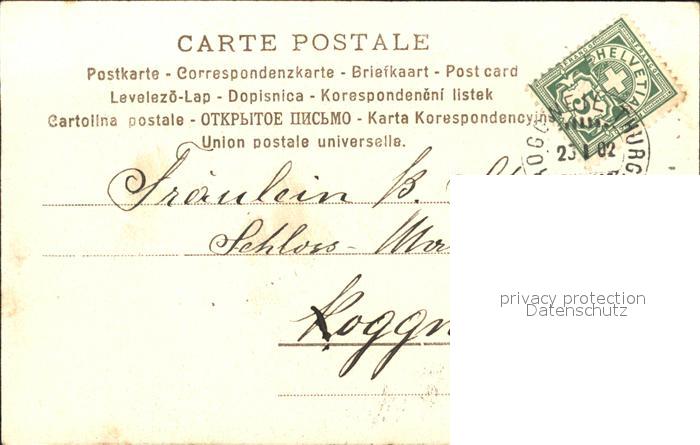 CARTE POSTALE
Postkarte - Correspondenzkarte - Briefkaart - Post card
Levelezõ-Lap - Dopisnica - Korespondenční listek
Cartolina postale - ОТКРЫТОЕ ПИСЬМО - Karta Korespondencyjna
Union postale universelle.
FRANCO HELVETIA FRANCO
5
23 02
Fräulein
Schloss-
privacy protection
Datenschutz